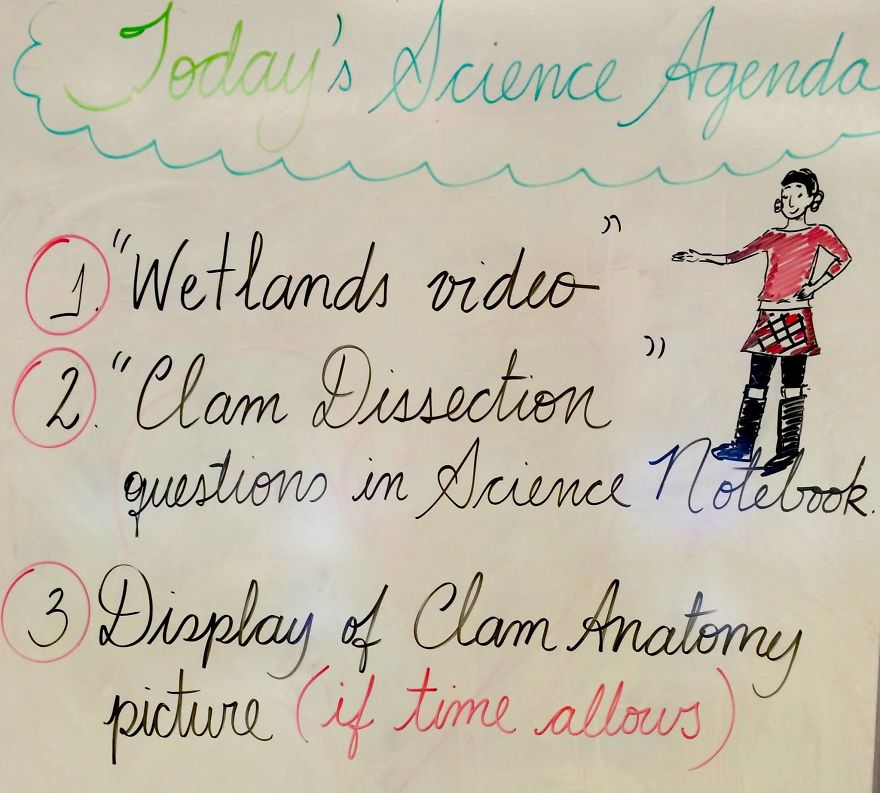 Today's Science Agenda
1. "Wetlands video"
2. "Clam Dissection"
questions in Science Notebook.
3 Display of Clam Anatomy
picture (if time allows)